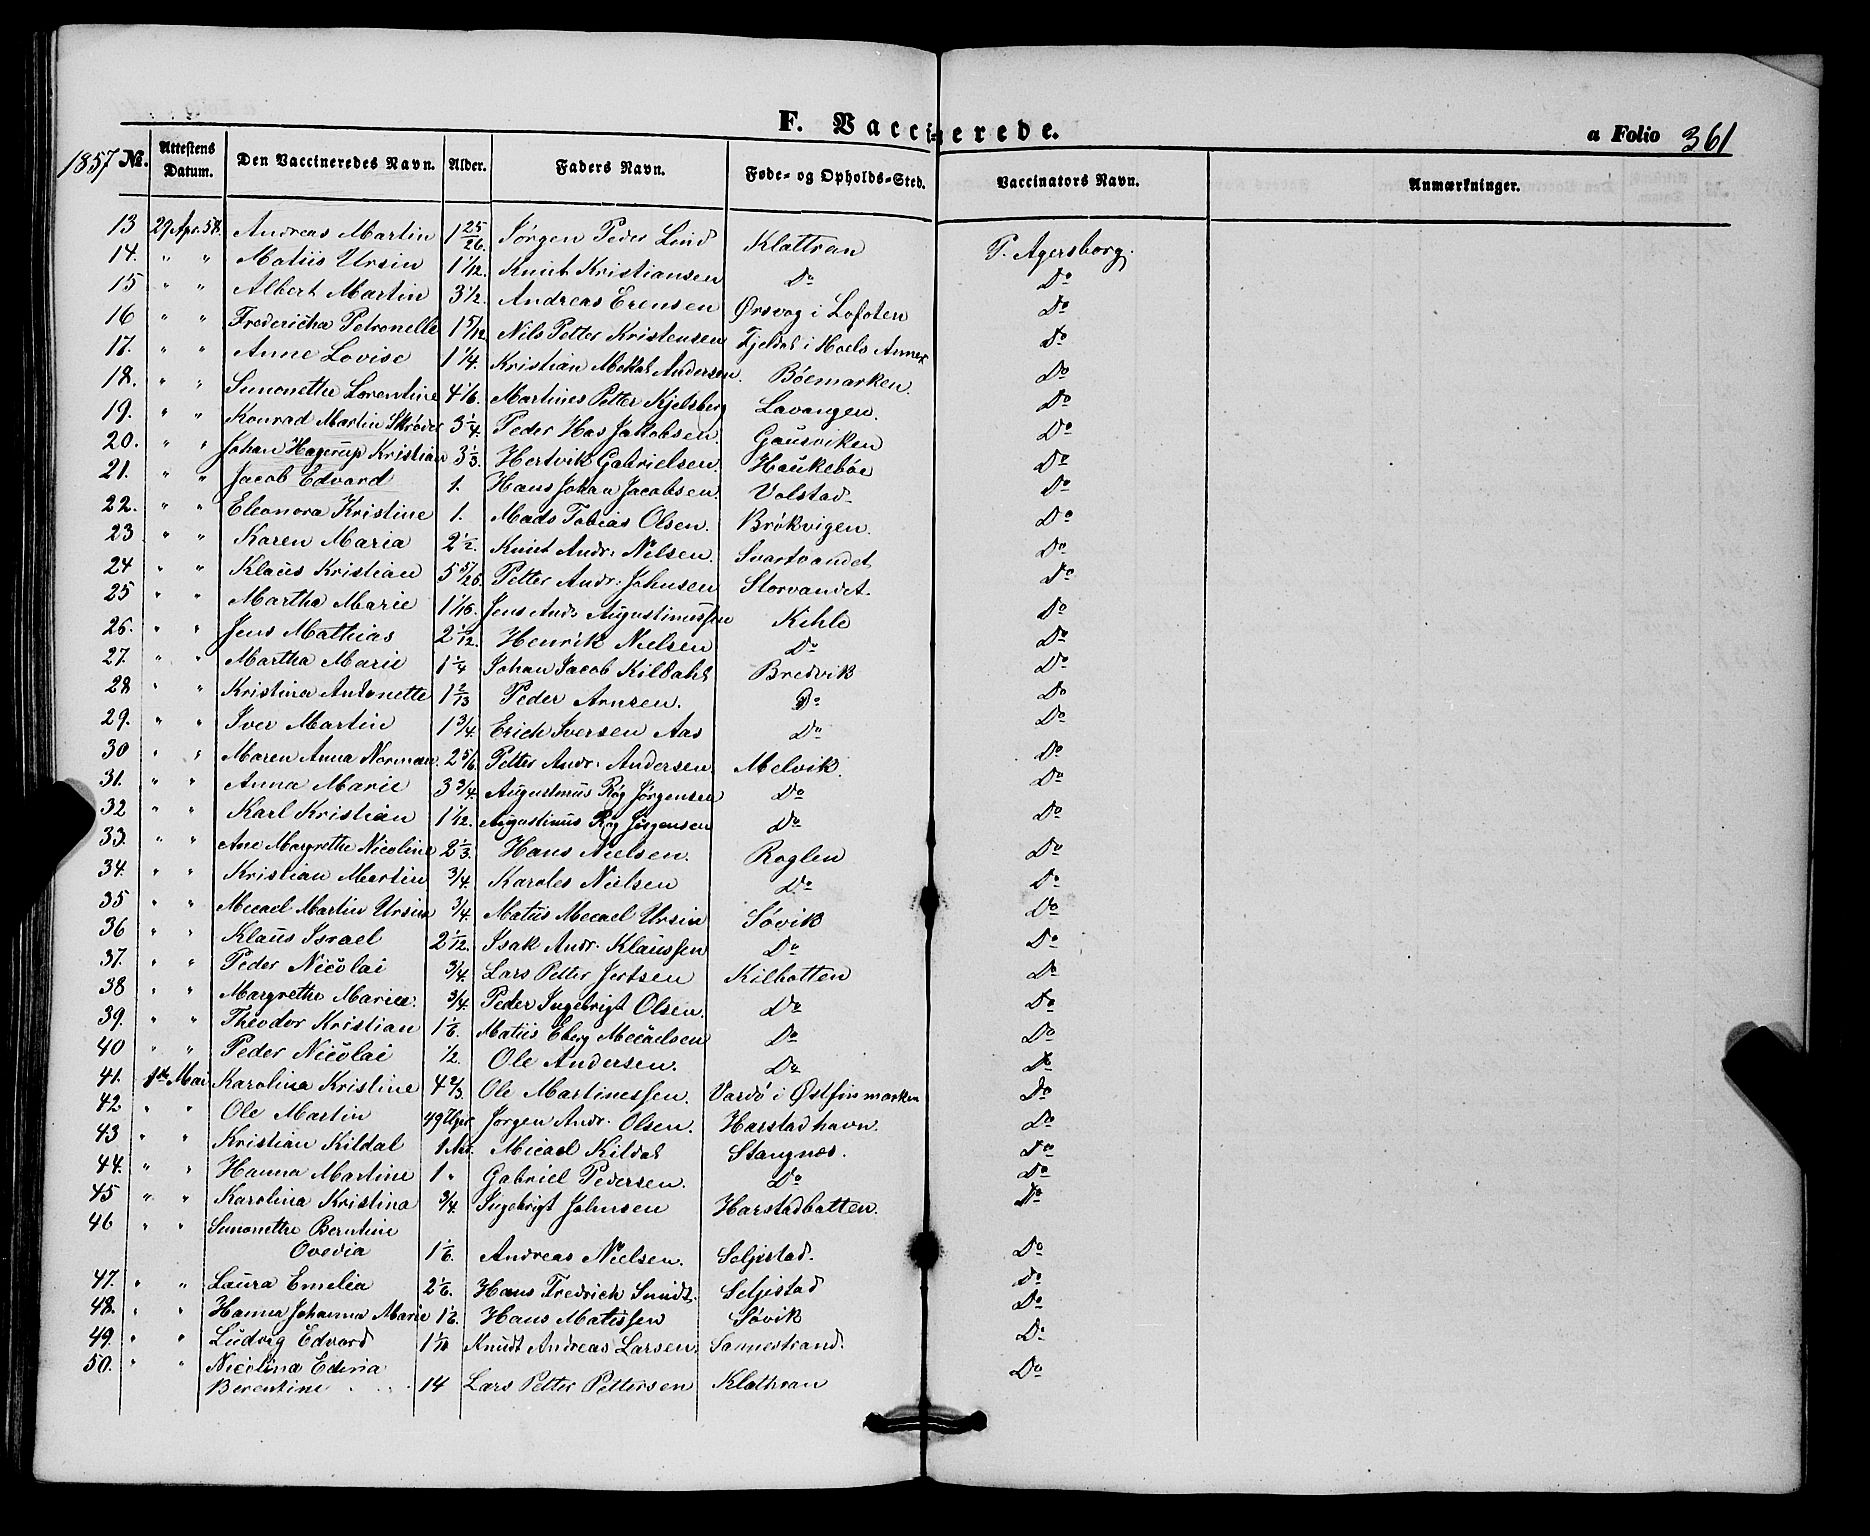 F. Vaccinerede.
a Folio 361
1857 No. Attestens Datum. Den Vaccineredes Navn. Alder. Faders Navn. Føde- og Opholds-Sted. Vaccinators Navn. Anmærkninger.
13 29 Apr. 58. Andreas Martin 1 25/26. Jørgen Peder Lind Klattran P. Agersborg.
14. " " Matiis Ursin 1 1/12. Knut Kristiansen Do Do
15 " " Albert Martin 3 1/2. Andreas Erensen Ørsvog i Lofoten Do
16 " " Fredericha Petronelle 1 5/12 Nils Petter Kristensen Fjeldal i Hoels Annex Do
17. " " Anne Lovise 1 1/4. Kristian Andersen. Bøemarken. Do
18. " " Simonethe Lorentine 4 1/6. Martines Petter Kjelsberg Lavangen. Do
19. " " Konrad Martin Skrøder 3 1/4. Peder Has Jakobsen. Gausviken Do
20. " " Johan Hagerup Kristian 3 1/3. Hertvik Gabrielsen. Haukebøe Do
21. " " Jacob Edvard 1. Hans Johan Jacobsen. Volstad Do
22. " " Eleonora Kristine 1. Mads Tobias Olsen. Brøkvigen. Do
23 " " Karen Maria 2 1/2. Knut Andr. Nilsen. Svartvandet Do
24 " " Klaus Kristian 5 5/26. Petter Andr. Johnsen Storvandet. Do
25 " " Martha Marie 1 1/16. Jens Andr. Augustinussen Kihle Do
26. " " Jens Mathias 2 1/12. Henrik Nielsen Do Do
27. " " Martha Marie 1 1/4 Johan Jacob Kildahl Bredvik Do
28 " " Kristina Antonette 1 2/13 Peder Arnsen. Do Do
29. " " Iver Martin 1 3/4. Erich Iversen Aas Do Do
30 " " Maren Anna Norman. 2 5/6. Petter Andr. Andersen Melvik. Do
31. " " Anna Marie 3 3/4. Augustinus Røg Jørgensen Do Do
32 " " Karl Kristian 1 1/12. Augustinus Røg Jørgensen Do Do
33. " " Ane Margrethe Nicoline 2 1/3. Hans Nielsen. Roglen Do
34. " " Kristian Martin 3/4. Karoles Nielsen Do Do
35 " " Mecael Martin Ursin 3/4. Matiis Mecael Ursin Søvik Do
36 " " Klaus Israel 2 1/12. Isak Andr. Klaussen Do Do
37. " " Peder Nicolai 3/4. Lars Petter Jertsen Kilbotten Do
38 " " Margrethe Mariea. 3/4. Peder Ingebrigt Olsen. Do Do
39. " " Theodor Kristian 1 1/6. Matiis Eberg Mecaelsen Do Do
40 " " Peder Nicolai 1/2. Ole Andersen. Do Do
41. 1ste Mai Karolina Kristine 4 2/3. Ole Martinessen. Vardö i Østfinmarken Do
42 " " Ole Martin 49 Uger Jørgen Andr. Olsen. Harstadhavn. Do
43 " " Kristian Kildal 1 Aar. Micael Kildal Stangnæs. Do
44. " " Hanna Martine 1 " Gabriel Pedersen. Do Do
45 " " Karolina Kristina 3/4. Ingebrigt Johnsen Harstadbotten. Do
46 " " Simonethe Berntine
Ovedia 1 1/6. Andreas Nielsen. Seljestad. Do
47. " " Laura Emelia 2 1/6. Hans Fredrich Smidt. Seljestad Do
48. " " Hanna Johanna Marie 1 1/6. Hans Matissen Søvik Do
49. " " Ludvig Edvard 1 1/10 Knudt Andreas Larsen. Sannestrand. Do
50. " " Nicolina Edina
Berentine 14 Lars Petter Pettersen Klathran Do